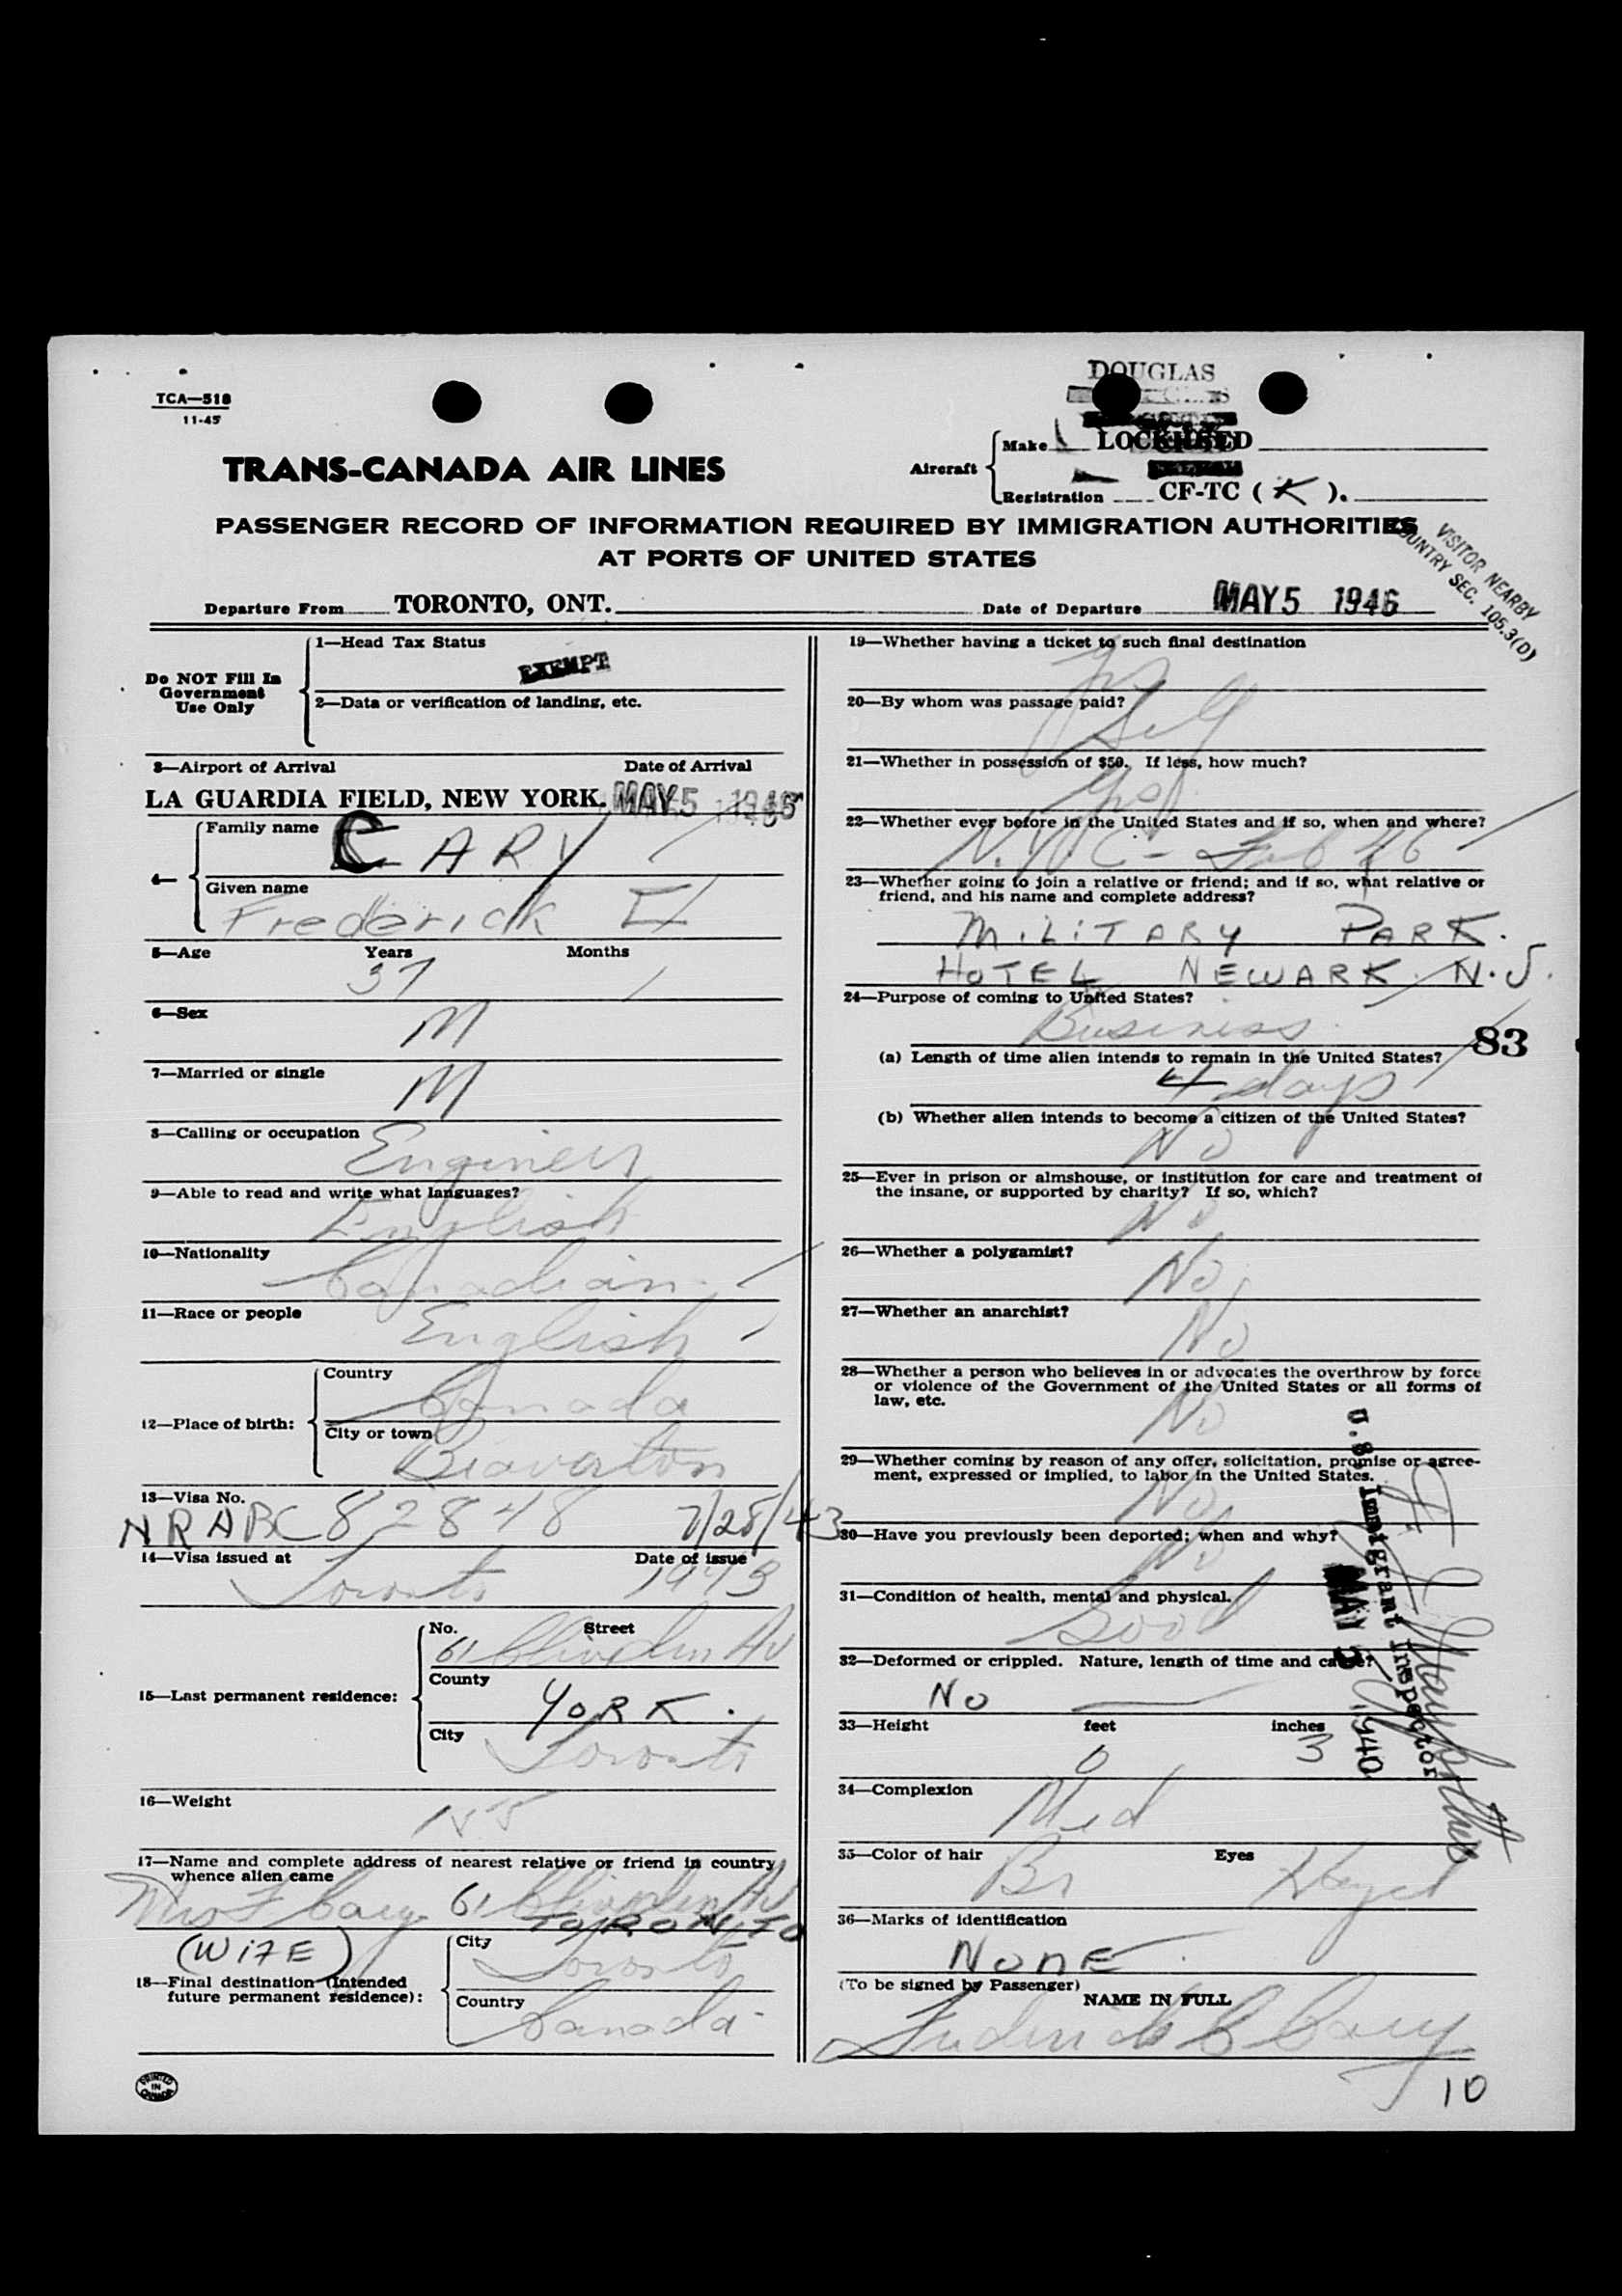 TCA—518
11-45
DOUGLAS
TRANS-CANADA AIR LINES
Aircraft
Make LOCKHEED
Registration CF-TC ( K ).
PASSENGER RECORD OF INFORMATION REQUIRED BY IMMIGRATION AUTHORITIES
AT PORTS OF UNITED STATES
VISITOR NEARBY
COUNTRY SEC. 105.3(D)
Departure From TORONTO, ONT. Date of Departure MAY 5 1946
Do NOT Fill In
Government
Use Only
1—Head Tax Status
EXEMPT
2—Data or verification of landing, etc.
3—Airport of Arrival Date of Arrival
LA GUARDIA FIELD, NEW YORK. MAY 5 1946
4—
Family name CARY
Given name
Frederick E
5—Age Years Months
37
6—Sex
M
7—Married or single
M
8—Calling or occupation
Engineer
9—Able to read and write what languages?
English
10—Nationality
Canadian
11—Race or people
English
12—Place of birth:
Country
Canada
City or town
Beaverton
13—Visa No.
NRABC 82848 7/28/43
14—Visa issued at Date of issue
Toronto 1943
15—Last permanent residence:
No. Street
61 Av
County
YORK.
City
Toronto
16—Weight
155
17—Name and complete address of nearest relative or friend in country
whence alien came
Mrs F Cary 61 Av
TORONTO
(WIFE)
18—Final destination (Intended
future permanent residence):
City
Toronto
Country
Canada
PRINTED
IN
CANADA
19—Whether having a ticket to such final destination
Yes
20—By whom was passage paid?
Self
21—Whether in possession of $50. If less, how much?
Yes
22—Whether ever before in the United States and if so, when and where?
N.Y.C - Feb 46
23—Whether going to join a relative or friend; and if so, what relative or
friend, and his name and complete address?
MILITARY PARK.
HOTEL NEWARK N.J.
24—Purpose of coming to United States?
Business
83
(a) Length of time alien intends to remain in the United States?
4 days
(b) Whether alien intends to become a citizen of the United States?
No
25—Ever in prison or almshouse, or institution for care and treatment of
the insane, or supported by charity? If so, which?
No
26—Whether a polygamist?
No
27—Whether an anarchist?
No
28—Whether a person who believes in or advocates the overthrow by force
or violence of the Government of the United States or all forms of
law, etc.
No
29—Whether coming by reason of any offer, solicitation, promise or agree-
ment, expressed or implied, to labor in the United States.
No
30—Have you previously been deported; when and why?
No
31—Condition of health, mental and physical.
Good
32—Deformed or crippled. Nature, length of time and cause?
No
U.S. Immigrant Inspector
33—Height feet inches
3
34—Complexion
Med
35—Color of hair Eyes
Br Hazel
36—Marks of identification
NONE
(To be signed by Passenger)
NAME IN FULL
Frederick E Cary
10